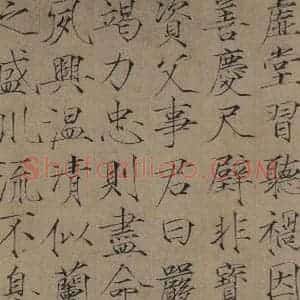 虛堂習聽禍因
善慶尺璧非寶
資父事君曰嚴
竭力忠則盡命
夙興温凊似蘭
之盛川流不息